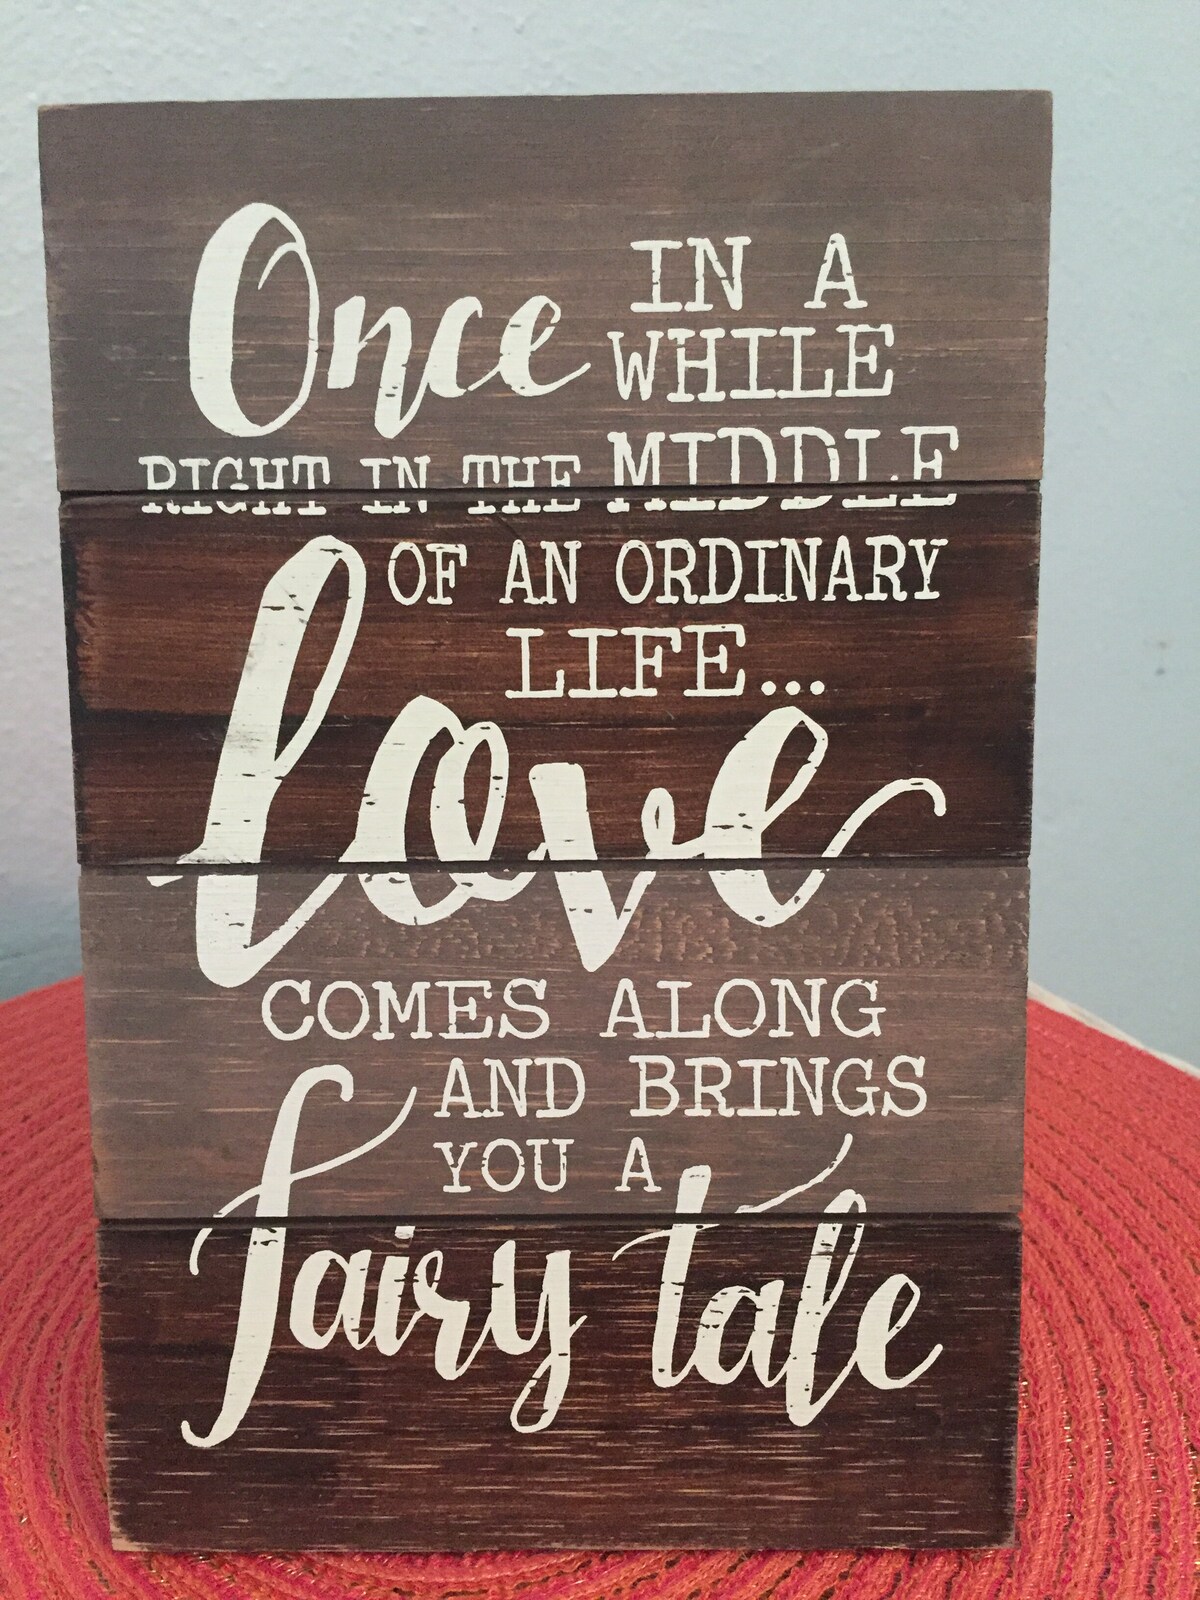 Once IN A
WHILE
RIGHT IN THE MIDDLE
OF AN ORDINARY
LIFE...
love
COMES ALONG
AND BRINGS
YOU A
fairy tale